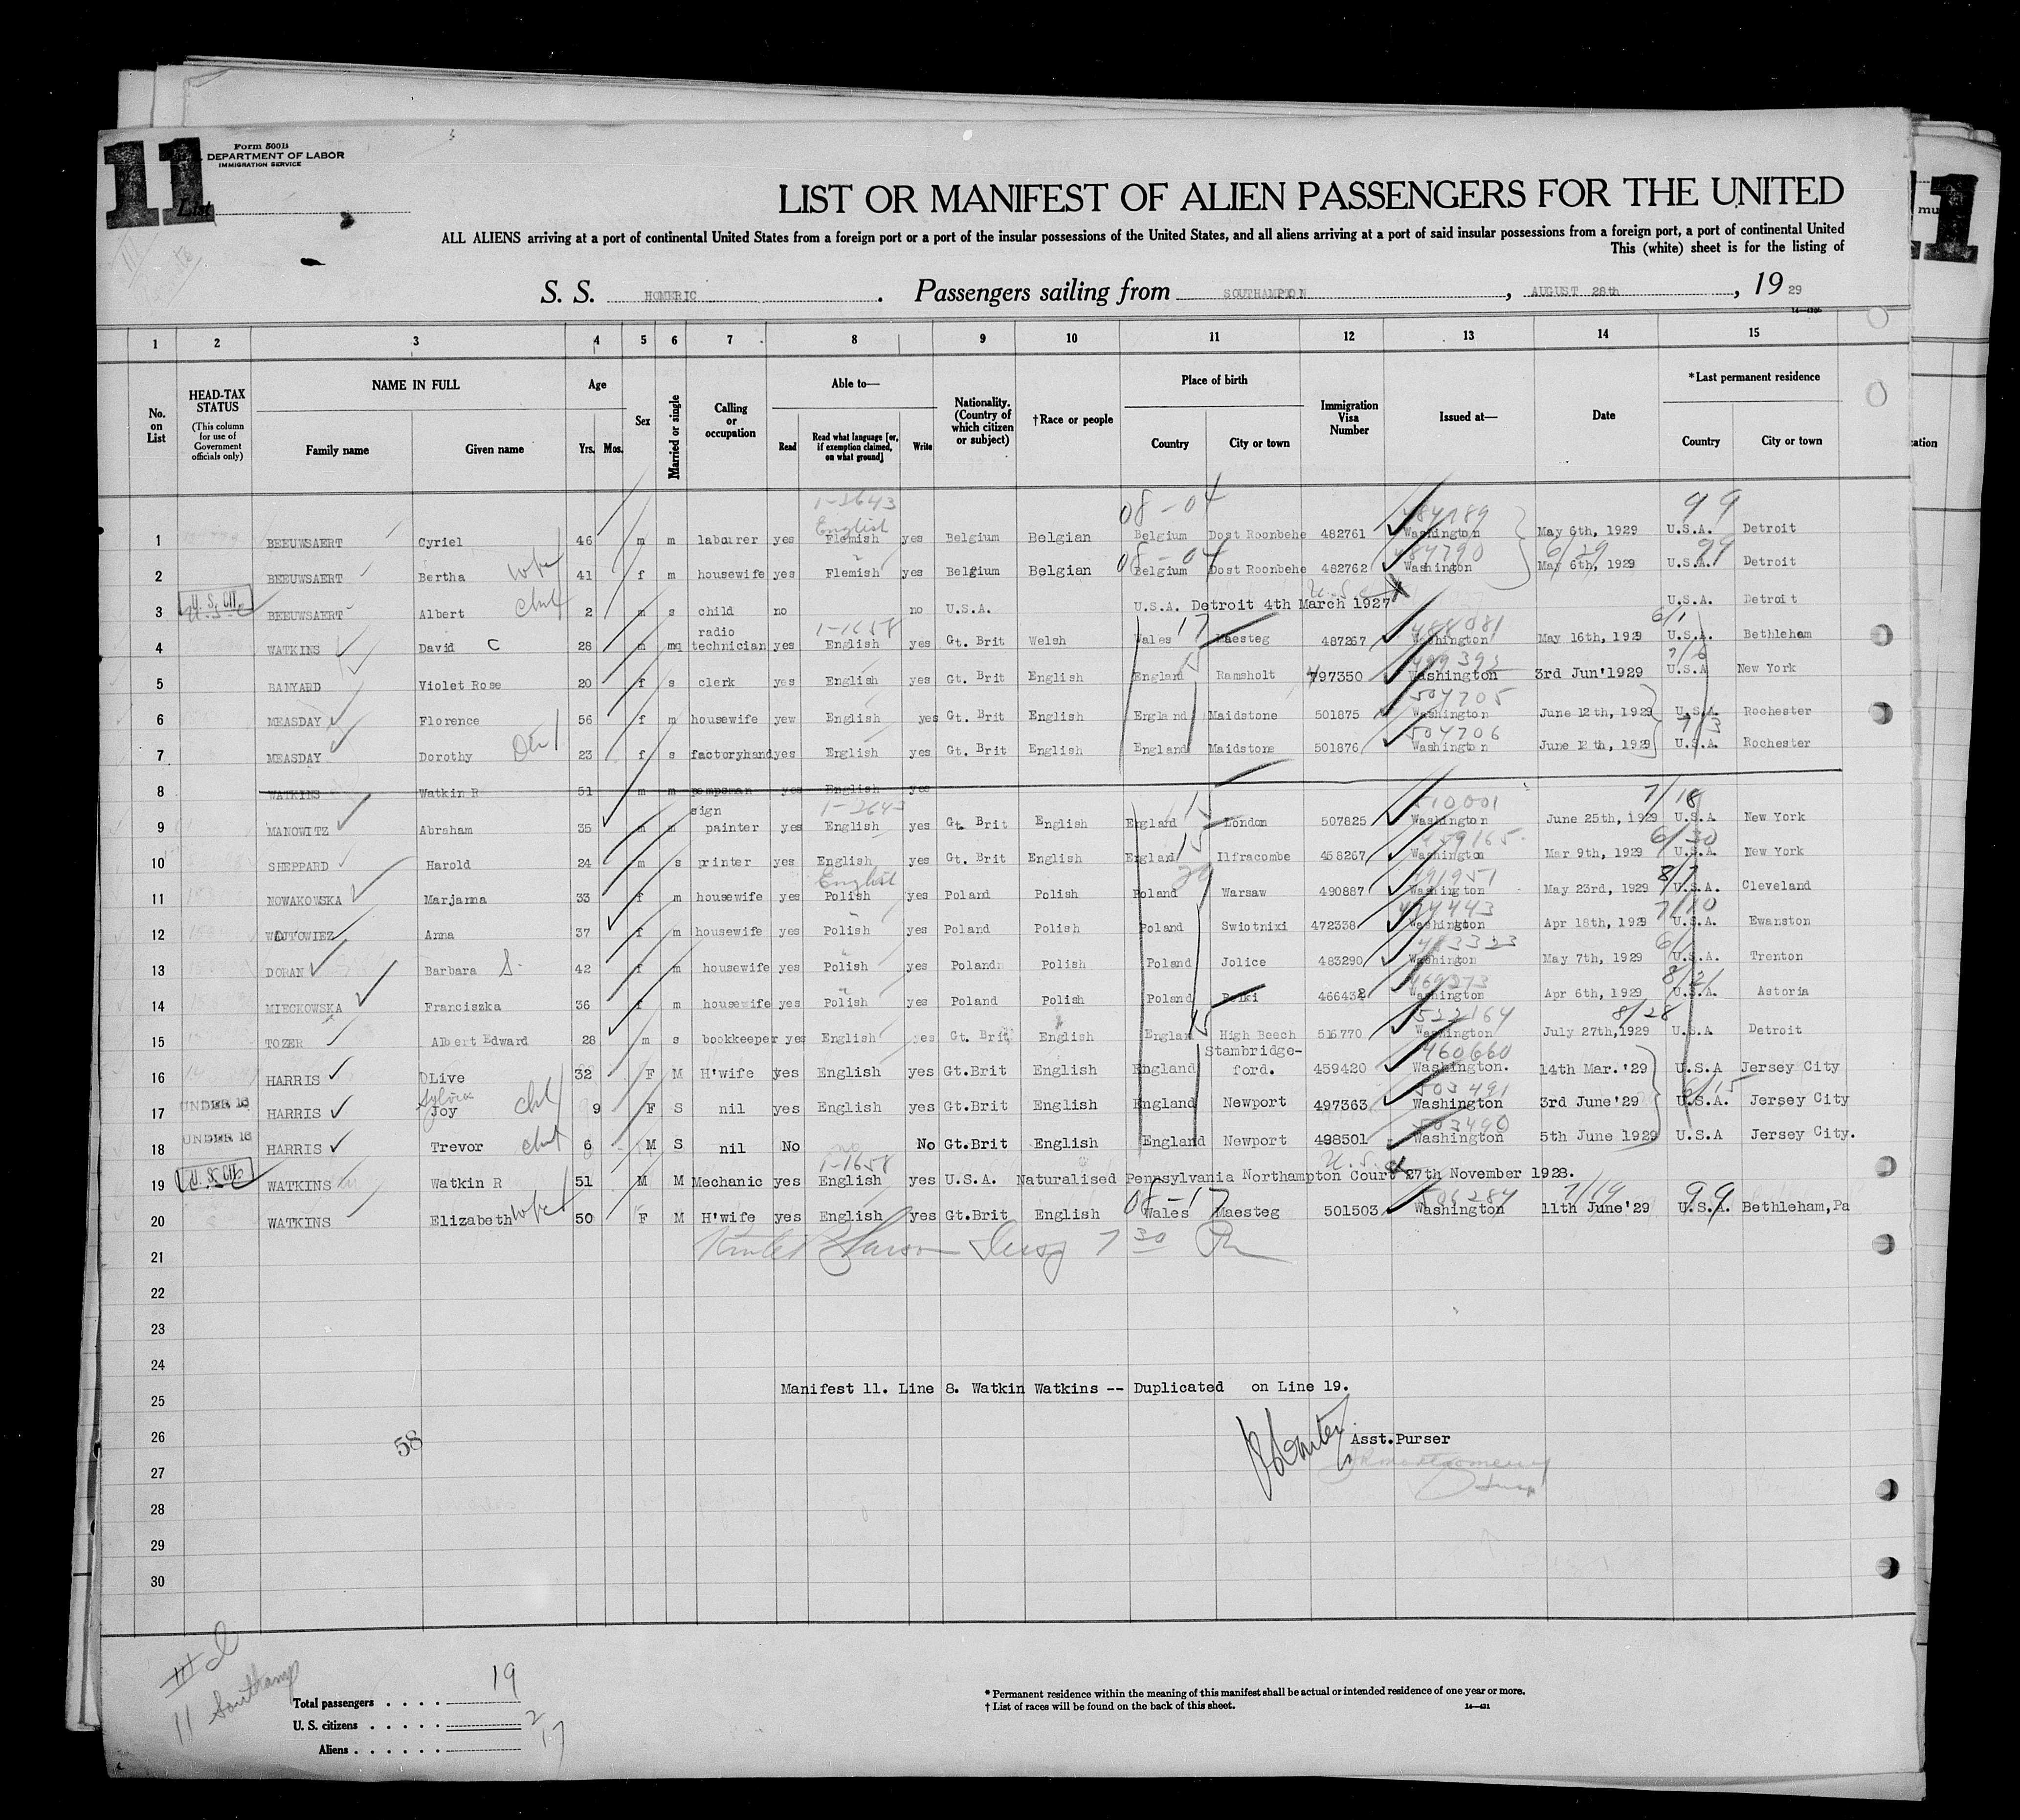 11
Form 500B
DEPARTMENT OF LABOR
IMMIGRATION SERVICE
List
LIST OR MANIFEST OF ALIEN PASSENGERS FOR THE UNITED
ALL ALIENS arriving at a port of continental United States from a foreign port or a port of the insular possessions of the United States, and all aliens arriving at a port of said insular possessions from a foreign port, a port of continental United
This (white) sheet is for the listing of
S. S. HOMERIC. Passengers sailing from SOUTHAMPTON, AUGUST 28th, 19 29
1 2 3 4 5 6 7 8 9 10 11 12 13 14 15
No. on List
HEAD-TAX STATUS (This column for use of Government officials only)
NAME IN FULL Family name Given name
Age Yrs. Mos.
Sex
Married or single
Calling or occupation
Able to— Read Read what language [or, if exemption claimed, on what ground] Write
Nationality. (Country of which citizen or subject)
†Race or people
Place of birth Country City or town
Immigration Visa Number
Issued at—
Date
*Last permanent residence Country City or town
1-3643 08-04 484789 99
English
1 BEEUWSAERT Cyriel 46 m m labourer yes Flemish yes Belgium Belgian Belgium Oost Roonbehe 482761 Washington May 6th, 1929 U.S.A. Detroit
08-04 484790 6/29 99
2 BEEUWSAERT Bertha wife 41 f m housewife yes Flemish yes Belgium Belgian Belgium Oost Roonbehe 482762 Washington May 6th, 1929 U.S.A. Detroit
U. S. CIT.
3 BEEUWSAERT Albert chd 2 m s child no no U.S.A. U.S.A. Detroit 4th March 1927 U.S.A. Detroit
1-1658 17 488081 6/1
4 WATKINS David C 28 m m radio technician yes English yes Gt. Brit Welsh Wales Maesteg 487267 Washington May 16th, 1929 U.S.A. Bethleham
15 499393 7/6
5 BANYARD Violet Rose 20 f s clerk yes English yes Gt. Brit English England Ramsholt 497350 Washington 3rd Jun'1929 U.S.A New York
504705
6 MEASDAY Florence 56 f m housewife yew English yes Gt. Brit English England Maidstone 501875 Washington June 12th, 1929 U.S.A. Rochester
504706 7/3
7 MEASDAY Dorothy 23 f s factoryhand yes English yes Gt. Brit English England Maidstone 501876 Washington June 12th, 1929 U.S.A. Rochester
8 WATKINS Watkin R 51 m m pumpsman yes English yes
1-2643 15 510001 7/18
9 MANOWITZ Abraham 35 m m sign painter yes English yes Gt. Brit English England London 507825 Washington June 25th, 1929 U.S.A New York
15 459165 6/30
10 SHEPPARD Harold 24 m s printer yes English yes Gt. Brit English England Ilfracombe 458267 Washington Mar 9th, 1929 U.S.A. New York
English 491951 8/7
11 NOWAKOWSKA Marjanna 33 f m housewife yes Polish yes Poland Polish Poland Warsaw 490887 Washington May 23rd, 1929 U.S.A. Cleveland
474443 7/10
12 WOJTOWIEZ Anna 37 f m housewife yes Polish yes Poland Polish Poland Swiotnixi 472338 Washington Apr 18th, 1929 U.S.A. Ewanston
483323 6/1
13 DORAN Barbara S. 42 f m housewife yes Polish yes Poland Polish Poland Jolice 483290 Washington May 7th, 1929 U.S.A. Trenton
469273 8/21
14 MIECKOWSKA Franciszka 36 f m housewife yes Polish yes Poland Polish Poland 466432 Washington Apr 6th, 1929 U.S.A. Astoria
15 522164 8/28
15 TOZER Albert Edward 28 m s bookkeeper yes English yes Gt. Brit English England High Beech 516770 Washington July 27th,1929 U.S.A Detroit
460660
16 HARRIS OLive 32 F M H'wife yes English yes Gt.Brit English England Stambridge-ford. 459420 Washington. 14th Mar.'29 U.S.A Jersey City
UNDER 16 Sylvia 503491 6/15
17 HARRIS Joy chd 9 F S nil yes English yes Gt.Brit English England Newport 497363 Washington 3rd June'29 U.S.A. Jersey City
UNDER 16 503490
18 HARRIS Trevor chd 6 M S nil No no No Gt.Brit English England Newport 498501 Washington 5th June 1929 U.S.A Jersey City.
U. S. CIT. 1-1658
19 WATKINS Watkin R 51 M M Mechanic yes English yes U.S.A. Naturalised Pennsylvania Northampton Court 27th November 1928.
08-17 506284 7/19 99
20 WATKINS Elizabeth wife 50 F M H'wife yes English yes Gt.Brit English Wales Maesteg 501503 Washington 11th June'29 U.S.A. Bethleham,Pa
21
22
23
24
Manifest 11. Line 8. Watkin Watkins -- Duplicated on Line 19.
25
26 Asst.Purser
58
27
28
29
30
11 Southamp
Total passengers . . . . 19
U. S. citizens . . . . . 2
Aliens . . . . . . 17
* Permanent residence within the meaning of this manifest shall be actual or intended residence of one year or more.
† List of races will be found on the back of this sheet.